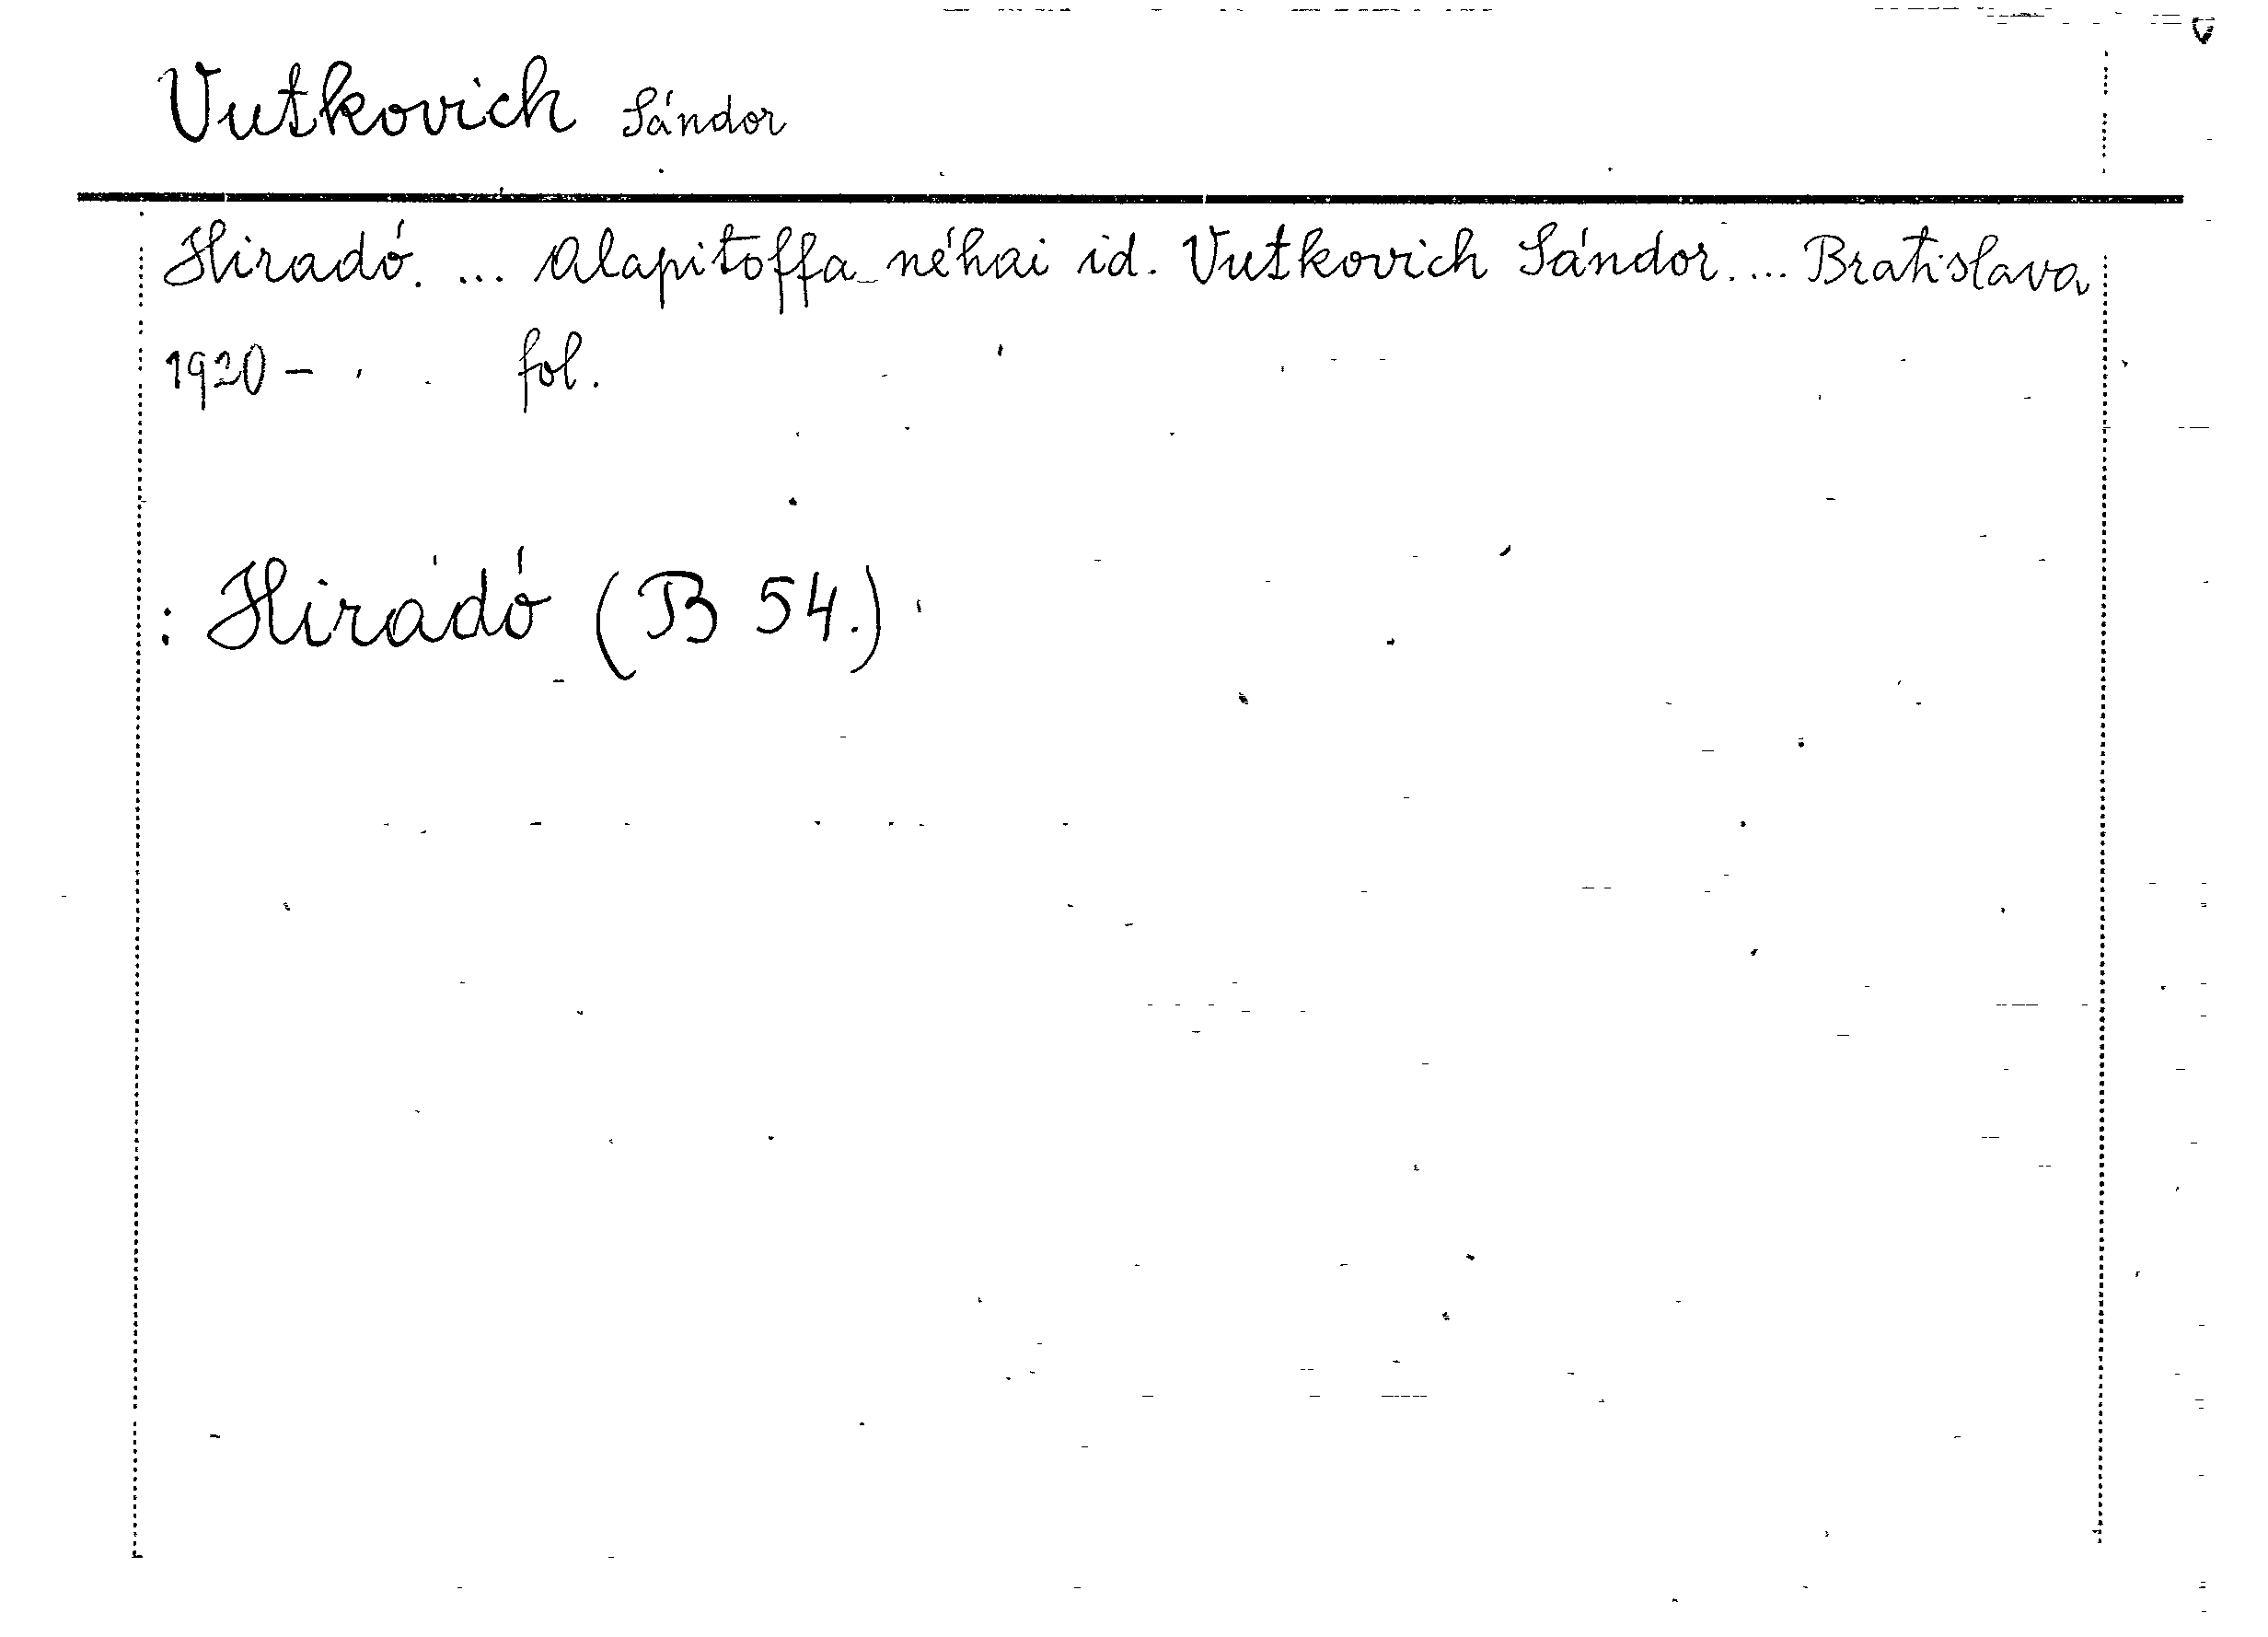 Vutkovich Sándor
Hiradó. ... Alapitoffa néhai id. Vutkovich Sándor. ... Bratislava
1920 - . fol.
: Hiradó (B 54.)